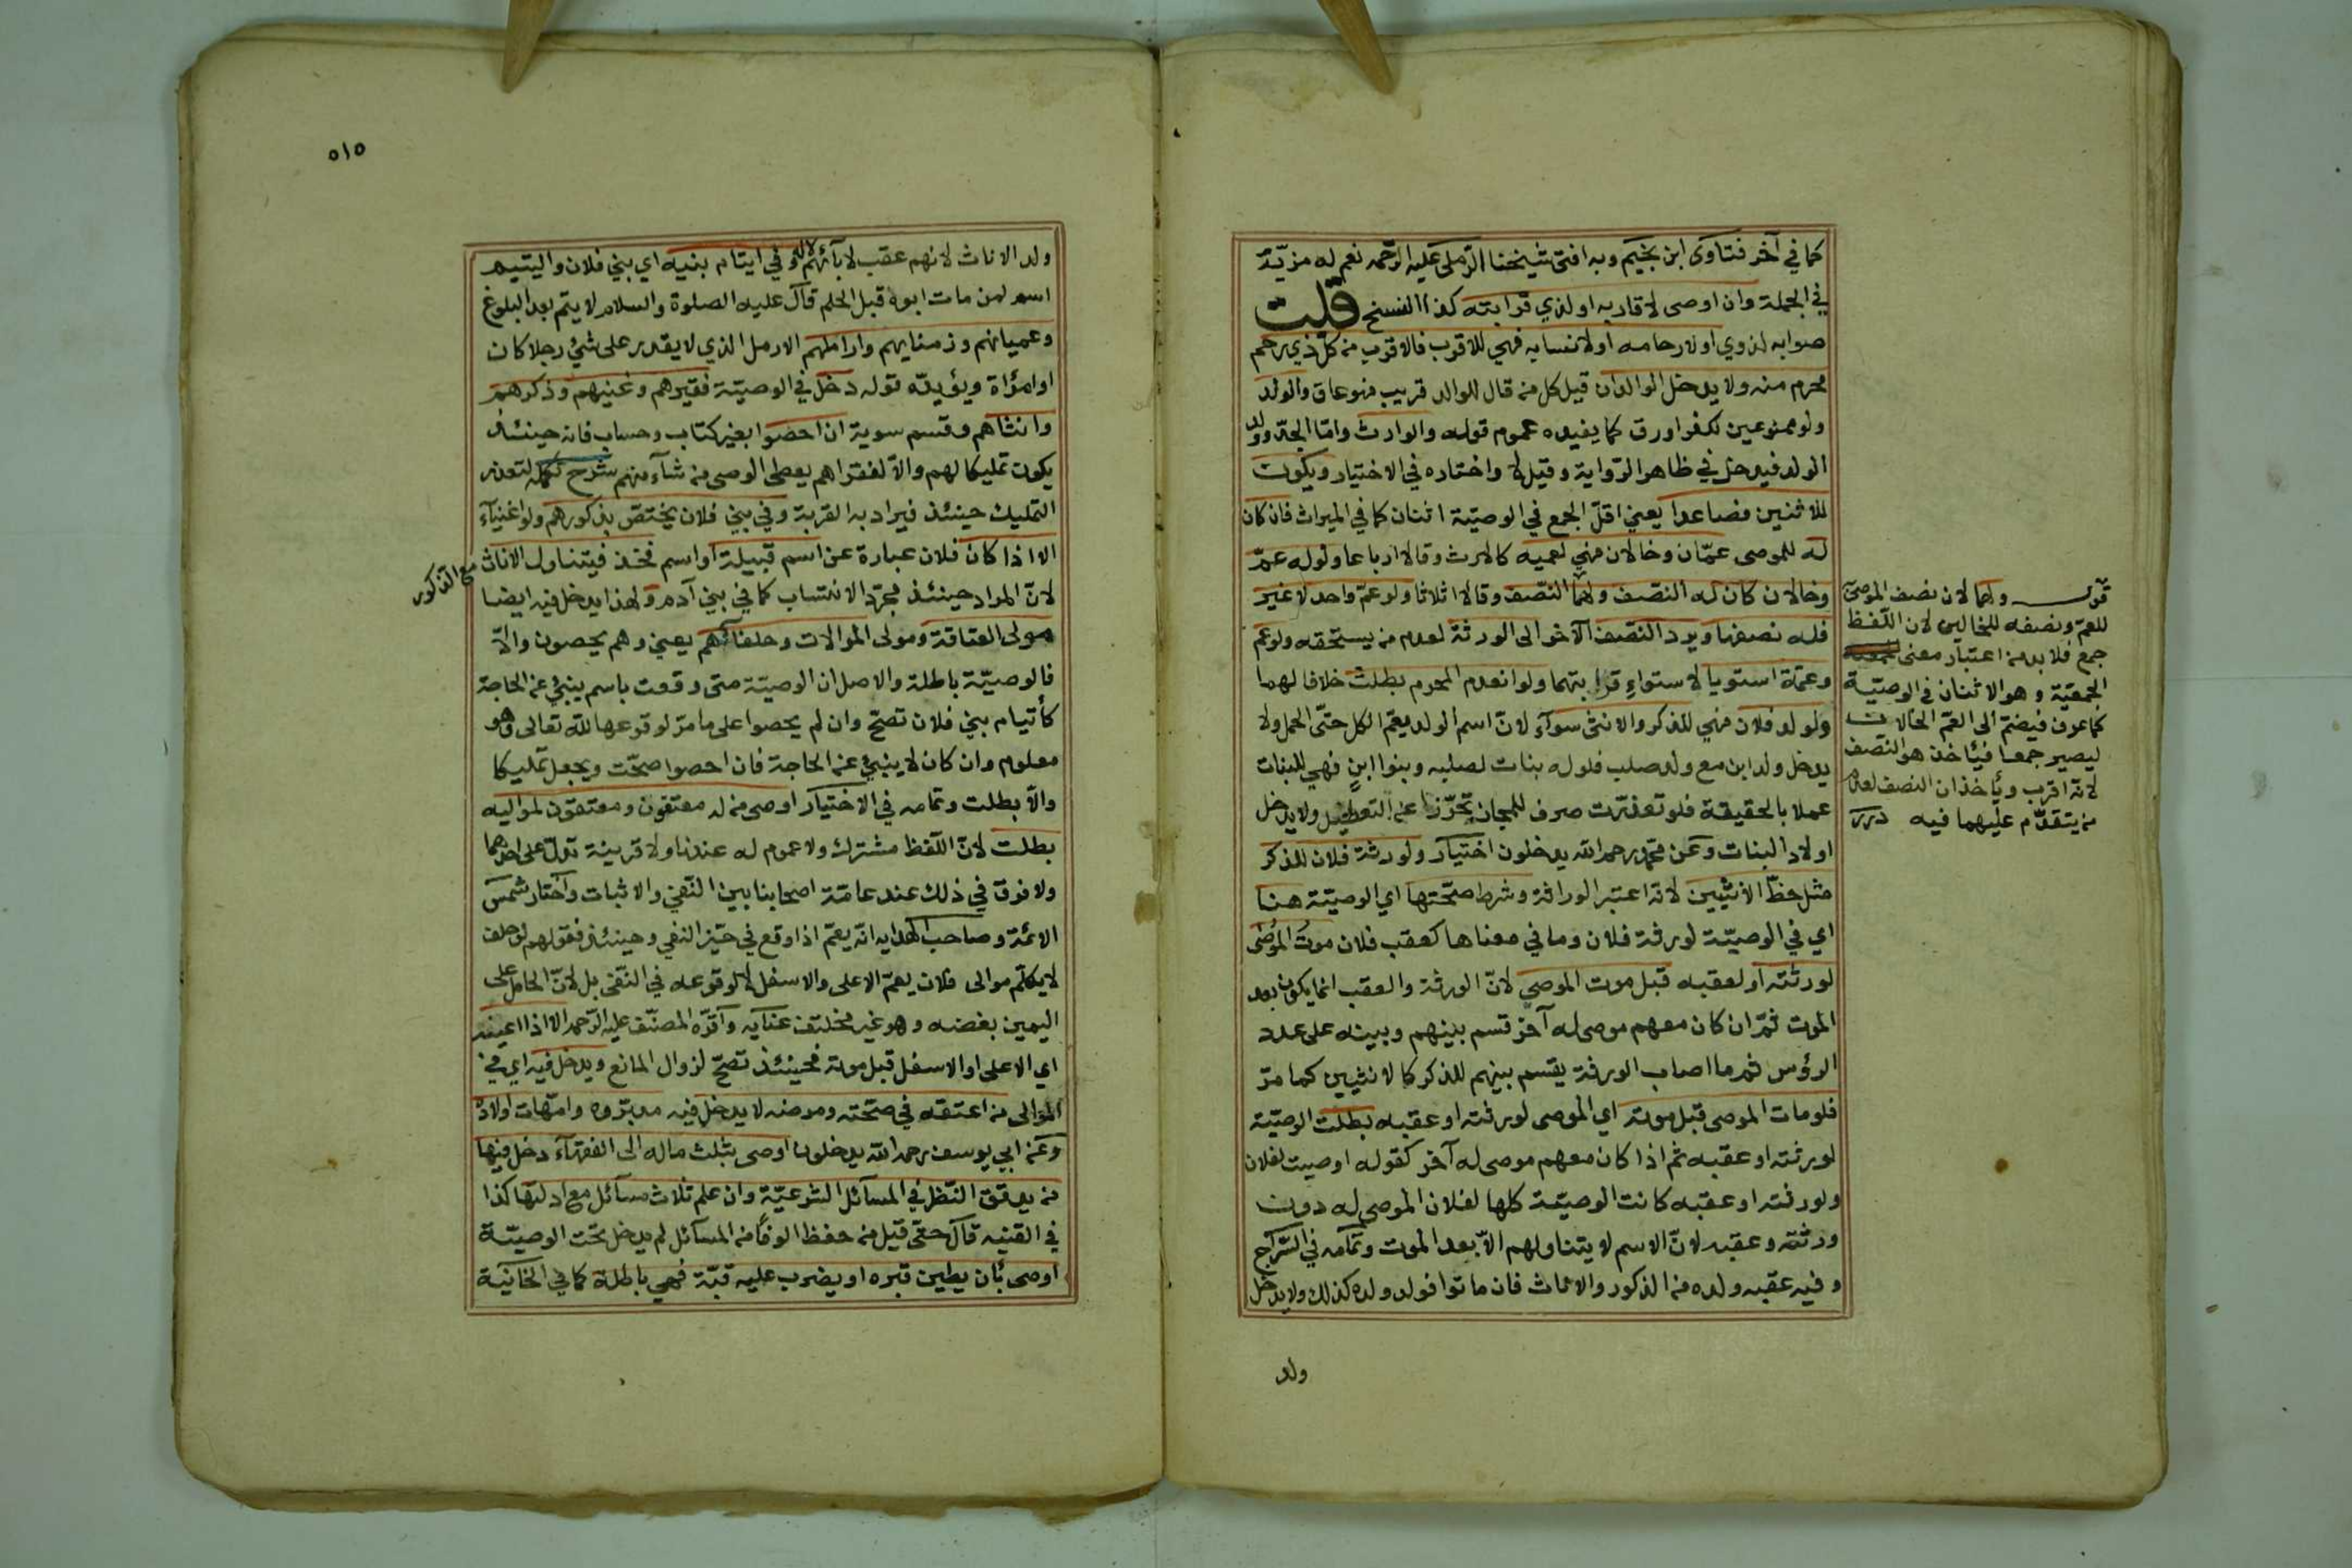 كما في آخر فتاوى ابن نجيم وبه افتى شيخنا الرملي عليه الرحمه نعم له مزيّة
في الجملة وان اوصى لاقاربه او لذي قرابته كذا النسخ قلت
صوابه لذوي او لارحامه او لانسابه فهي للاقرب فالاقرب من كل ذي رحم
محرم منه ولا يدخل الوالدان قيل كل من قال للوالد قريب فهو عاق والولد
ولو ممنوعين لكفر او رق كما يفيده عموم قوله والوارث وامّا الجدّ وولد
الولد فيدخل في ظاهر الرّواية وقيل لا واختاره في الاختيار ويكون
للاثنين فصاعدا يعني اقلّ الجمع في الوصيّة اثنان كما في الميراث فان كان
له للموصى عمّان وخالان فهي لعميه كالارث وقالا ارباعا ولو له عمّ
وخالان كان له النصف ولهما النّصف وقالا اثلاثا ولو عمّ واحد لا غير
فله نصفها ويرد النّصف الآخر الى الورثة لعدم من يستحقه ولو عم
وعمّة استويا لاستواءِ قرابتهما ولو انعدم المحرم بطلت خلافا لهما
ولولد فلان فهي للذكر والانثى سوآء لانّ اسم الولد يعمّ الكل حتّى الحمل ولا
يدخل ولد ابن مع ولد صلب فلو له بنات لصلبه وبنوا ابنٍ فهي للبنات
عملا بالحقيقة فلو تعذّرت صرف للمجاز تحرّزا عن التعطيل ولا يدخل
اولاد البنات وعن محمّد رحمه الله يدخلون اختيار ولورثة فلان للذكر
مثل حظّ الأنثيين لانه اعتبر الوراثة وشرط صحّتها اي الوصيّة هنا
اي في الوصيّة لورثة فلان وما في معناها كعقب فلان موتُ المُوصٰى
لورثته او لعقبه قبل موت الموصي لانّ الورثة والعقب انما يكون بعد
الموت ثمّ ان كان معهم موصى له آخر قسم بينهم وبينه على عدد
الرؤس ثم ما اصاب الورثة يقسم بينهم للذكر كالانثيين كما مرّ
فلو مات الموصى قبل موته اي الموصى لورثته او عقبه بطلت الوصيّة
لورثته او عقبه ثم اذا كان معهم موصى له آخر كقوله اوصيت لفلان
ولورثته او عقبه كانت الوصيّة كلها لفلان الموصى له دون
ورثته وعقبه لانّ الاسم لا يتناولهم الاّ بعد الموت وتمامه في السّراج
وفيه عقبه ولده من الذكور والاناث فان ماتوا فولد ولده كذلك ولا يدخل
ولد
قوله ولهما لان نصف الموصى
للعمّ ونصفه للخالين لان اللّفظ
جمع فلا بد من اعتبار معنى
الجمعيّة وهو الاثنان في الوصيّة
كما عرف فيضمّ الى العمّ الخالان
ليصير جمعا فيأخذ هو النّصف
لانّه اقرب ويأخذان النصف لعدم
من يتقدّم عليهما فيه درر
٥١٥
ولد الاناث لانهم عقب لآبائهم لا له وفي ايتام بنيه اي بني فلان واليتيم
اسم لمن مات ابوه قبل الحلم قال عليه الصلوة والسلام لا يتم بعد البلوغ
وعميانهم وزمناهم واراملهم الارمل الذي لا يقدر على شئ رجلا كان
او امرأة ويؤيده قوله دخل في الوصيّة فقيرهم وغنيهم وذكرهم
وانثاهم وقسم سوية ان احصوا بغير كتاب وحساب فانه حينئذ
يكون تمليكا لهم والاّ لفقراهم يعطى الوصى من شآء منهم شرح تكمله لتعذر
التمليك حينئذ فيراد به القربة وفي بني فلان يختصّ بذكورهم ولو اغنيآء
الا اذا كان فلان عبارة عن اسم قبيلة او اسم فخذ فيتناول الاناث
مع الذكور
لانّ المراد حينئذ مجرّد الانتساب كما في بني آدم ولهذا يدخل فيه ايضا
مولى العتاقة ومولى الموالات وحلفائهم يعني وهم يحصون والاّ
فالوصيّة باطلة والاصل ان الوصيّة متى وقعت باسم ينبئ عن الحاجة
كأيتام بني فلان تصحّ وان لم يحصوا على ما مرّ لوقوعها لله تعالى وهو
معلوم وان كان لا ينبئ عن الحاجة فان احصوا صحّت ويجعل تمليكا
والاّ بطلت وتمامه في الاختيار اوصى من له معتقون ومعتقون لمواليه
بطلت لانّ اللّفظ مشترك ولا عموم له عندنا ولا قرينة تدلّ على احدهما
ولا فرق في ذلك عند عامّة اصحابنا بين النّفي والاثبات واختار شمس
الائمّة وصاحب الهدايه انّه يعمّ اذا وقع في حيّز النفي وحينئذ فقولهم لو حلف
لا يكلّم موالى فلان يعمّ الاعلى والاسفل لا لوقوعه في النّفى بل لانّ الحامل على
اليمين بغضه وهو غير مختلف عنايه واقرّه المصنّف عليه الرّحمه الا اذا عينه
اي الاعلى او الاسفل قبل موته فحينئذ تصحّ لزوال المانع ويدخل فيه اي في
الموالى من اعتقه في صحّته ومرضه لا يدخل فيه مدبّروه وامّهات اولاده
وعن ابي يوسف رحمه الله يدخلون اوصى بثلث ماله الى الفقهآء دخل فيها
من يدقق النّظر في المسآئل الشرعيّة وان علم ثلاث مسآئل مع ادلتها كذا
في القنيه قال حتى قيل من حفظ الوفًا من المسآئل لم يدخل تحت الوصيّة
اوصى بأن يطين قبره او يضرب عليه قبّة فهي باطلة كما في الخانيّة